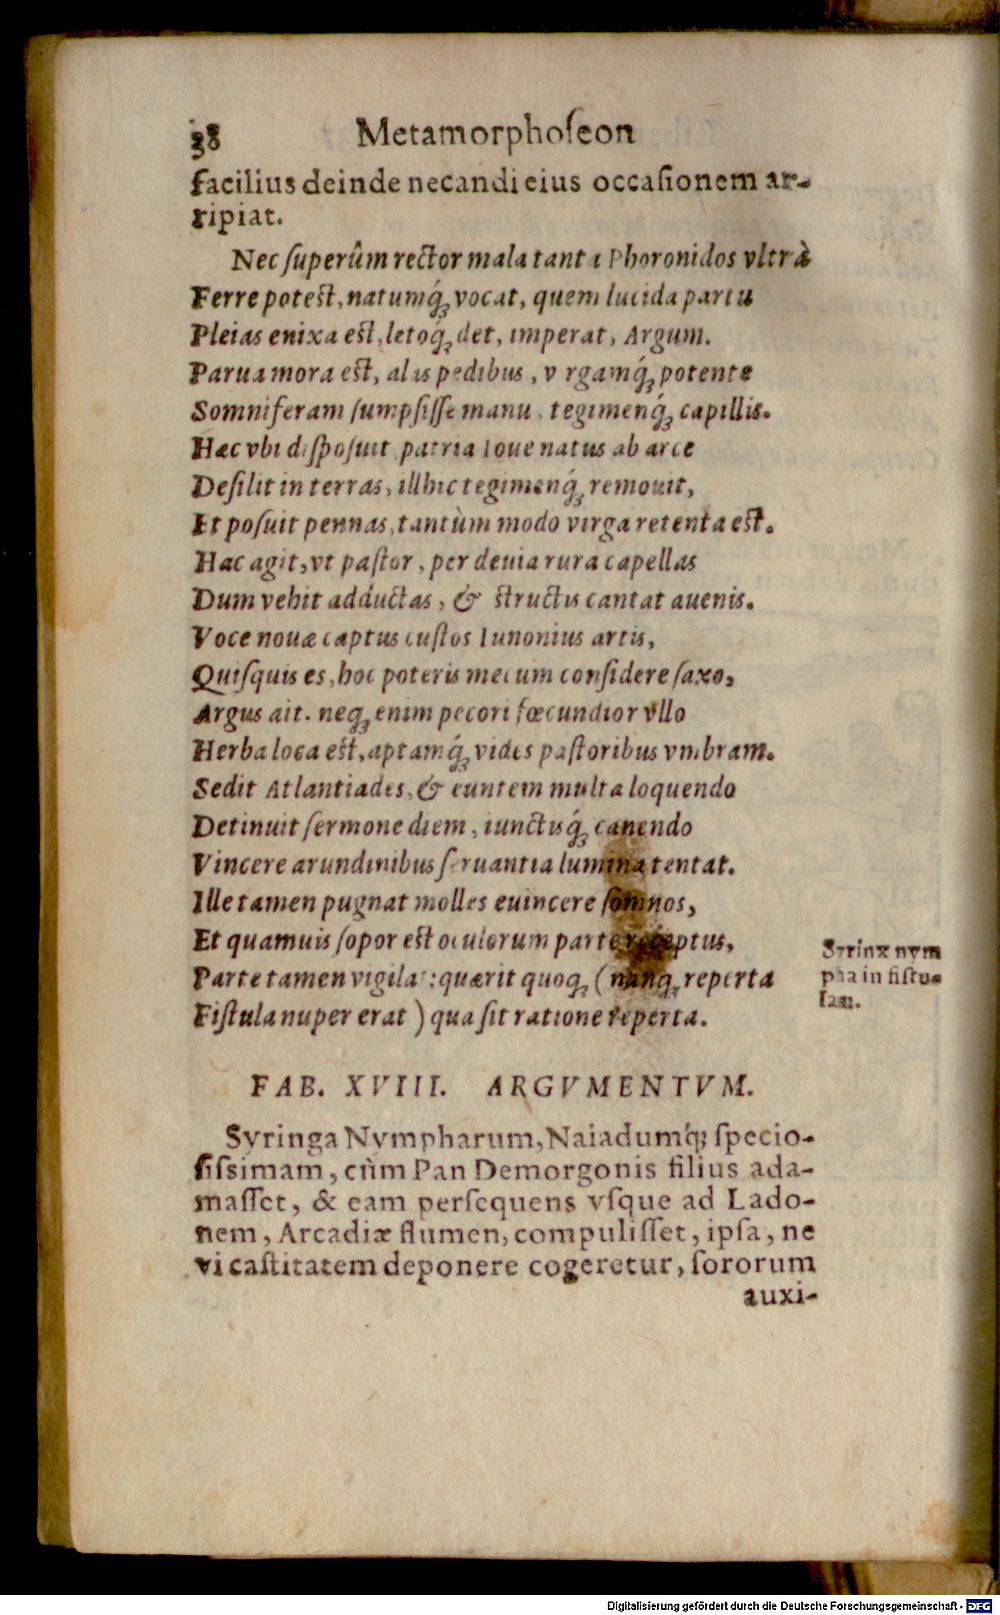 38 Metamorphoſeon
facilius deinde necandi eius occaſionem ar-
ripiat.
Nec ſuperûm rector mala tanta Phoronidos vltrà
Ferre poteſt, natumq́ꝫ vocat, quem lucida partu
Pleias enixa eſt, letoq́ꝫ det, imperat, Argum.
Parua mora eſt, alas pedibus, virgamq́ꝫ potente
Somniferam ſumpſiſſe manu, tegimenq́ꝫ capillis.
Hæc vbi diſpoſuit, patria Ioue natus ab arce
Deſilit in terras, illhic tegimenq́ꝫ remouit,
Et poſuit pennas, tantùm modo virga retenta eſt.
Hac agit, vt paſtor, per deuia rura capellas
Dum vehit adductas, & ſtructis cantat auenis.
Voce nouæ captus cuſtos Iunonius artis,
Quiſquis es, hoc poteris mecum conſidere ſaxo,
Argus ait. neqꝫ enim pecori fœcundior vllo
Herba loca eſt, aptamq́ꝫ vides paſtoribus vmbram.
Sedit Atlantiades, & euntem multa loquendo
Detinuit ſermone diem, iunctisq́ꝫ canendo
Vincere arundinibus ſeruantia lumina tentat.
Ille tamen pugnat molles euincere ſomnos,
Et quamuis ſopor eſt oculorum parte receptus,
Parte tamen vigilat: quærit quoqꝫ (nanqꝫ reperta
Fiſtula nuper erat) qua ſit ratione reperta.
Syrinx nym
pha in fiſtu-
lam.
FAB. XVIII. ARGVMENTVM.
Syringa Nympharum, Naiadumq́ꝫ ſpecio-
ſiſsimam, cùm Pan Demorgonis filius ada-
maſſet, & eam perſequens vſque ad Lado-
nem, Arcadiæ flumen, compuliſſet, ipſa, ne
vi caſtitatem deponere cogeretur, ſororum
auxi-
Digitalisierung gefördert durch die Deutsche Forschungsgemeinschaft - DFG